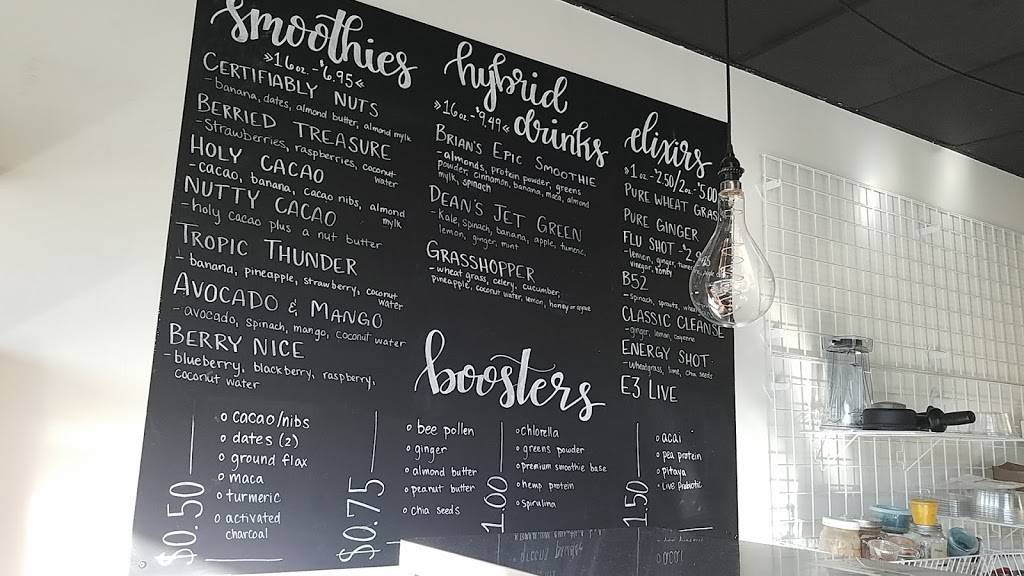 smoothies
»16 oz. - $6.95«
CERTIFIABLY NUTS
- banana, dates, almond butter, almond mylk
BERRIED TREASURE
- Strawberries, raspberries, coconut
water
HOLY CACAO
- cacao, banana, cacao nibs, almond
mylk
NUTTY CACAO
- holy cacao plus a nut butter
TROPIC THUNDER
- banana, pineapple, strawberry, coconut
water
AVOCADO & MANGO
- avocado, spinach, mango, coconut water
BERRY NICE
- blueberry, blackberry, raspberry,
coconut water
hybrid
drinks
»16 oz - $9.49«
BRIAN'S EPIC SMOOTHIE
- almonds, protein powder, greens
powder, cinnamon, banana, maca, almond
mylk, spinach
DEAN'S JET GREEN
- Kale, spinach, banana, apple, tumeric,
lemon, ginger, mint
GRASSHOPPER
- wheat grass, celery, cucumber,
pineapple, coconut water, lemon, honey or agave
elixirs
1 oz - 2.50/2 oz - $5.00
PURE WHEAT GRASS
PURE GINGER
FLU SHOT
- lemon, ginger,
vinegar, honey
B52
- spinach, sprouts,
CLASSIC CLEANSE
- ginger, lemon, cayenne
ENERGY SHOT
- wheatgrass, lime, chia seeds
E3 LIVE
boosters
$0.50
o cacao/nibs
o dates (2)
o ground flax
o maca
o turmeric
o activated
charcoal
$0.75
o bee pollen
o ginger
o almond butter
o peanut butter
o chia seeds
1.00
o chlorella
o greens powder
o premium smoothie base
o hemp protein
o spirulina
1.50
o acai
o pea protein
o pitaya
- Live probiotic